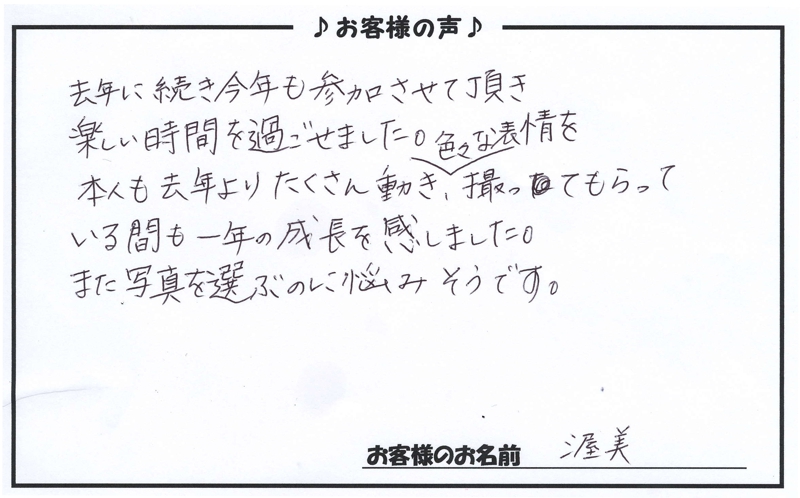 ♪お客様の声♪
去年に続き今年も参加させて頂き
楽しい時間を過ごせました。色々な表情を
本人も去年よりたくさん動き、撮ってもらって
いる間も一年の成長を感じました。
また写真を選ぶのに悩みそうです。
お客様のお名前 渥美